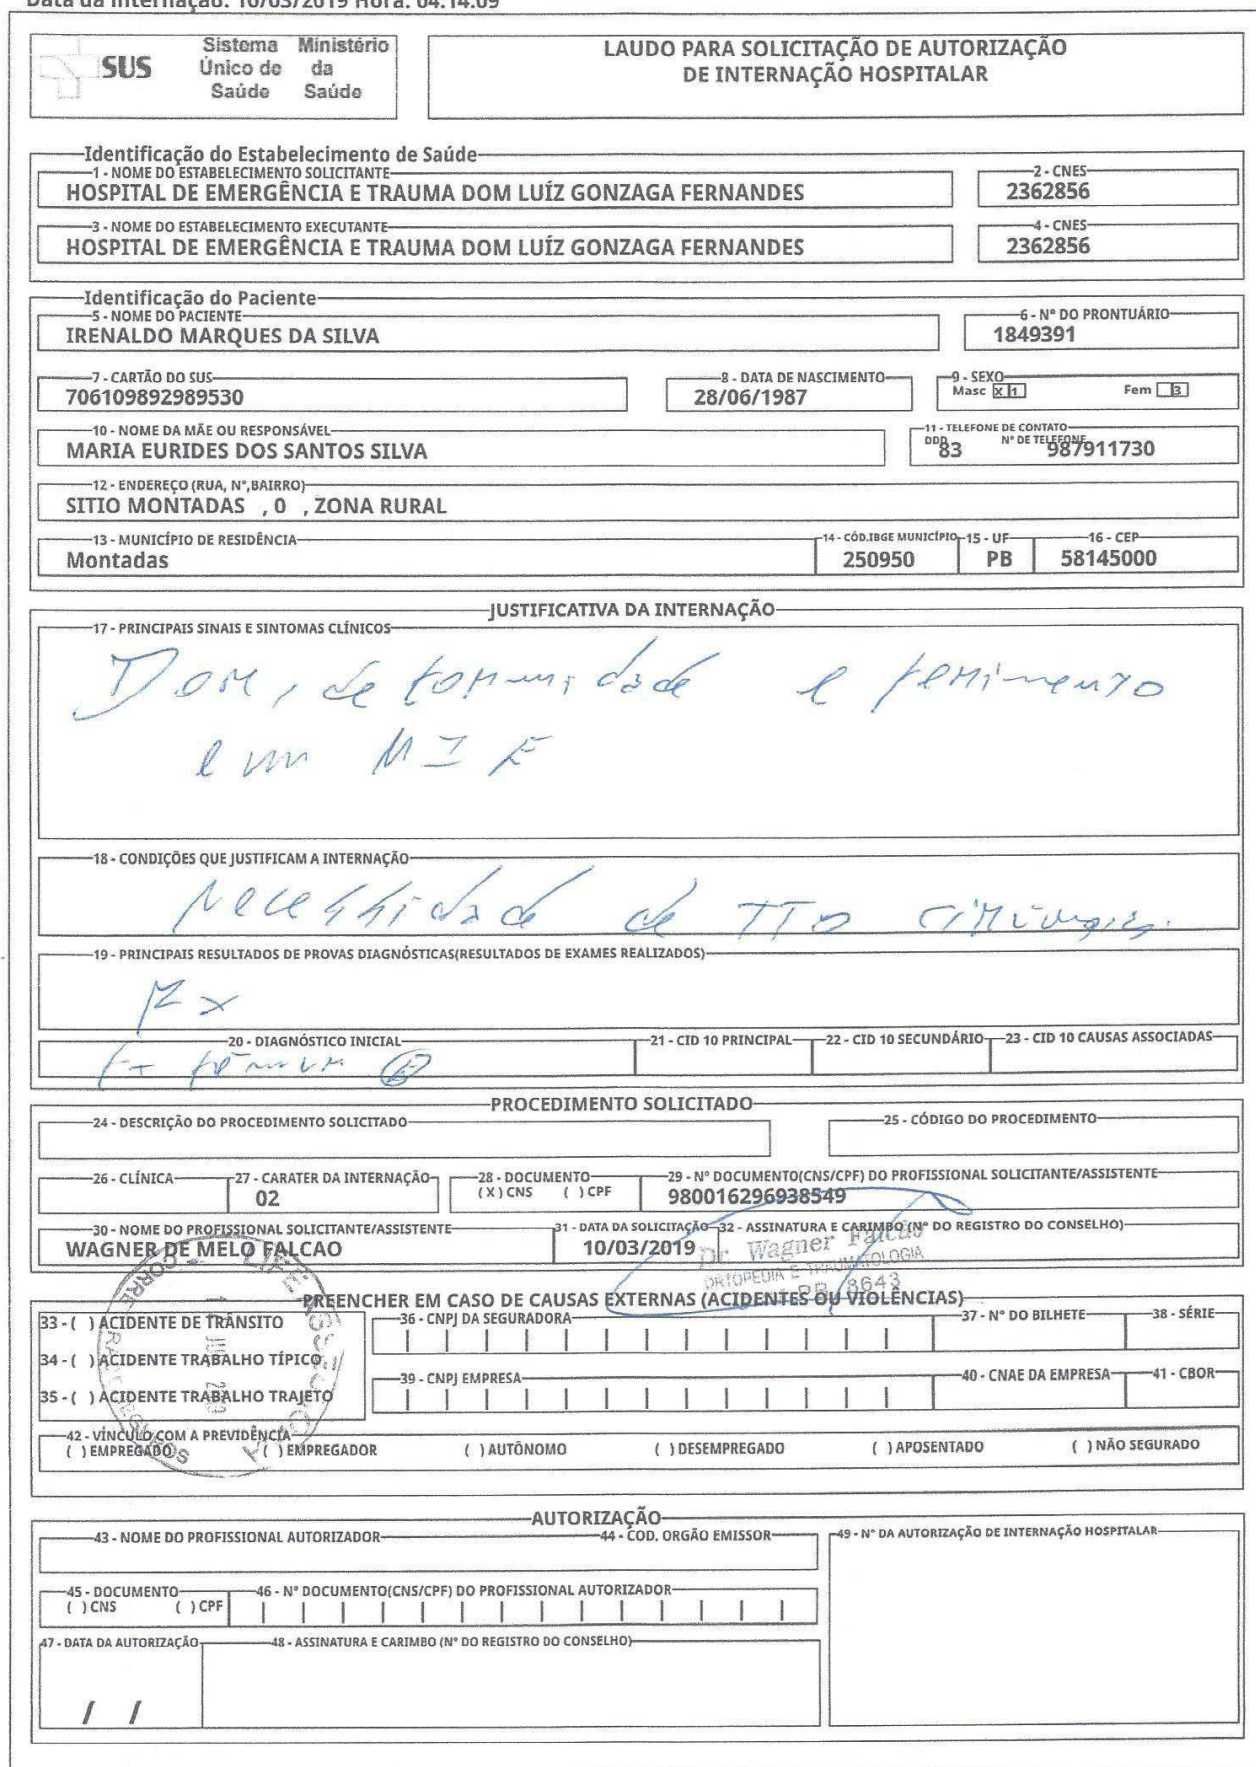 Data da Internação: 10/03/2019 Hora: 04:14:09
SUS
Sistema Único de Saúde
Ministério da Saúde
LAUDO PARA SOLICITAÇÃO DE AUTORIZAÇÃO
DE INTERNAÇÃO HOSPITALAR
Identificação do Estabelecimento de Saúde
1 - NOME DO ESTABELECIMENTO SOLICITANTE
2 - CNES
HOSPITAL DE EMERGÊNCIA E TRAUMA DOM LUÍZ GONZAGA FERNANDES
2362856
3 - NOME DO ESTABELECIMENTO EXECUTANTE
4 - CNES
HOSPITAL DE EMERGÊNCIA E TRAUMA DOM LUÍZ GONZAGA FERNANDES
2362856
Identificação do Paciente
5 - NOME DO PACIENTE
6 - N° DO PRONTUÁRIO
IRENALDO MARQUES DA SILVA
1849391
7 - CARTÃO DO SUS
8 - DATA DE NASCIMENTO
9 - SEXO
706109892989530
28/06/1987
Masc X 1 Fem 3
10 - NOME DA MÃE OU RESPONSÁVEL
11 - TELEFONE DE CONTATO
DDD N° DE TELEFONE
MARIA EURIDES DOS SANTOS SILVA
83 987911730
12 - ENDEREÇO (RUA, N°,BAIRRO)
SITIO MONTADAS , 0 , ZONA RURAL
13 - MUNICÍPIO DE RESIDÊNCIA
14 - CÓD.IBGE MUNICÍPIO
15 - UF
16 - CEP
Montadas
250950
PB
58145000
JUSTIFICATIVA DA INTERNAÇÃO
17 - PRINCIPAIS SINAIS E SINTOMAS CLÍNICOS
Dor, deformidade e ferimento
em MIE
18 - CONDIÇÕES QUE JUSTIFICAM A INTERNAÇÃO
Necessidade de TTO cirúrgico
19 - PRINCIPAIS RESULTADOS DE PROVAS DIAGNÓSTICAS(RESULTADOS DE EXAMES REALIZADOS)
RX
20 - DIAGNÓSTICO INICIAL
21 - CID 10 PRINCIPAL
22 - CID 10 SECUNDÁRIO
23 - CID 10 CAUSAS ASSOCIADAS
fêmur E
PROCEDIMENTO SOLICITADO
24 - DESCRIÇÃO DO PROCEDIMENTO SOLICITADO
25 - CÓDIGO DO PROCEDIMENTO
26 - CLÍNICA
27 - CARATER DA INTERNAÇÃO
28 - DOCUMENTO
29 - N° DOCUMENTO(CNS/CPF) DO PROFISSIONAL SOLICITANTE/ASSISTENTE
02
( X ) CNS ( ) CPF
980016296938549
30 - NOME DO PROFISSIONAL SOLICITANTE/ASSISTENTE
31 - DATA DA SOLICITAÇÃO
32 - ASSINATURA E CARIMBO (N° DO REGISTRO DO CONSELHO)
WAGNER DE MELO FALCAO
10/03/2019
Dr. Wagner Falcão
ORTOPEDIA E TRAUMATOLOGIA
PB 8643
PREENCHER EM CASO DE CAUSAS EXTERNAS (ACIDENTES OU VIOLÊNCIAS)
33 - ( ) ACIDENTE DE TRÂNSITO
36 - CNPJ DA SEGURADORA
37 - N° DO BILHETE
38 - SÉRIE
34 - ( ) ACIDENTE TRABALHO TÍPICO
39 - CNPJ EMPRESA
40 - CNAE DA EMPRESA
41 - CBOR
35 - ( ) ACIDENTE TRABALHO TRAJETO
42 - VÍNCULO COM A PREVIDÊNCIA
( ) EMPREGADO ( ) EMPREGADOR ( ) AUTÔNOMO ( ) DESEMPREGADO ( ) APOSENTADO ( ) NÃO SEGURADO
AUTORIZAÇÃO
43 - NOME DO PROFISSIONAL AUTORIZADOR
44 - COD. ORGÃO EMISSOR
49 - N° DA AUTORIZAÇÃO DE INTERNAÇÃO HOSPITALAR
45 - DOCUMENTO
46 - N° DOCUMENTO(CNS/CPF) DO PROFISSIONAL AUTORIZADOR
( ) CNS ( ) CPF
47 - DATA DA AUTORIZAÇÃO
48 - ASSINATURA E CARIMBO (N° DO REGISTRO DO CONSELHO)
/ /